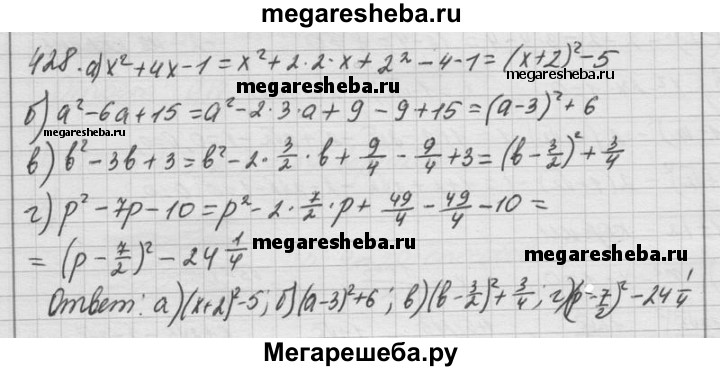 megaresheba.ru
428. а) x² + 4x - 1 = x² + 2 · 2 · x + 2² - 4 - 1 = (x + 2)² - 5
megaresheba.ru
б) a² - 6a + 15 = a² - 2 · 3 · a + 9 - 9 + 15 = (a - 3)² + 6
megaresheba.ru
в) b² - 3b + 3 = b² - 2 · 3/2 · b + 9/4 - 9/4 + 3 = (b - 3/2)² + 3/4
г) p² - 7p - 10 = p² - 2 · 7/2 · p + 49/4 - 49/4 - 10 =
= (p - 7/2)² - 24 1/4 megaresheba.ru megaresheba.ru
Ответ: а) (x + 2)² - 5; б) (a - 3)² + 6; в) (b - 3/2)² + 3/4; г) (p - 7/2)² - 24 1/4
Мегарешеба.ру